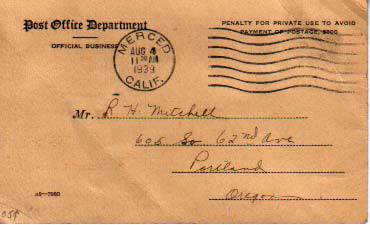 Post Office Department
OFFICIAL BUSINESS
MERCED
AUG 4
11 30 AM
1939
CALIF.
PENALTY FOR PRIVATE USE TO AVOID
PAYMENT OF POSTAGE, $300
Mr. R H Mitchell
606 So 62nd Ave
Portland
Oregon